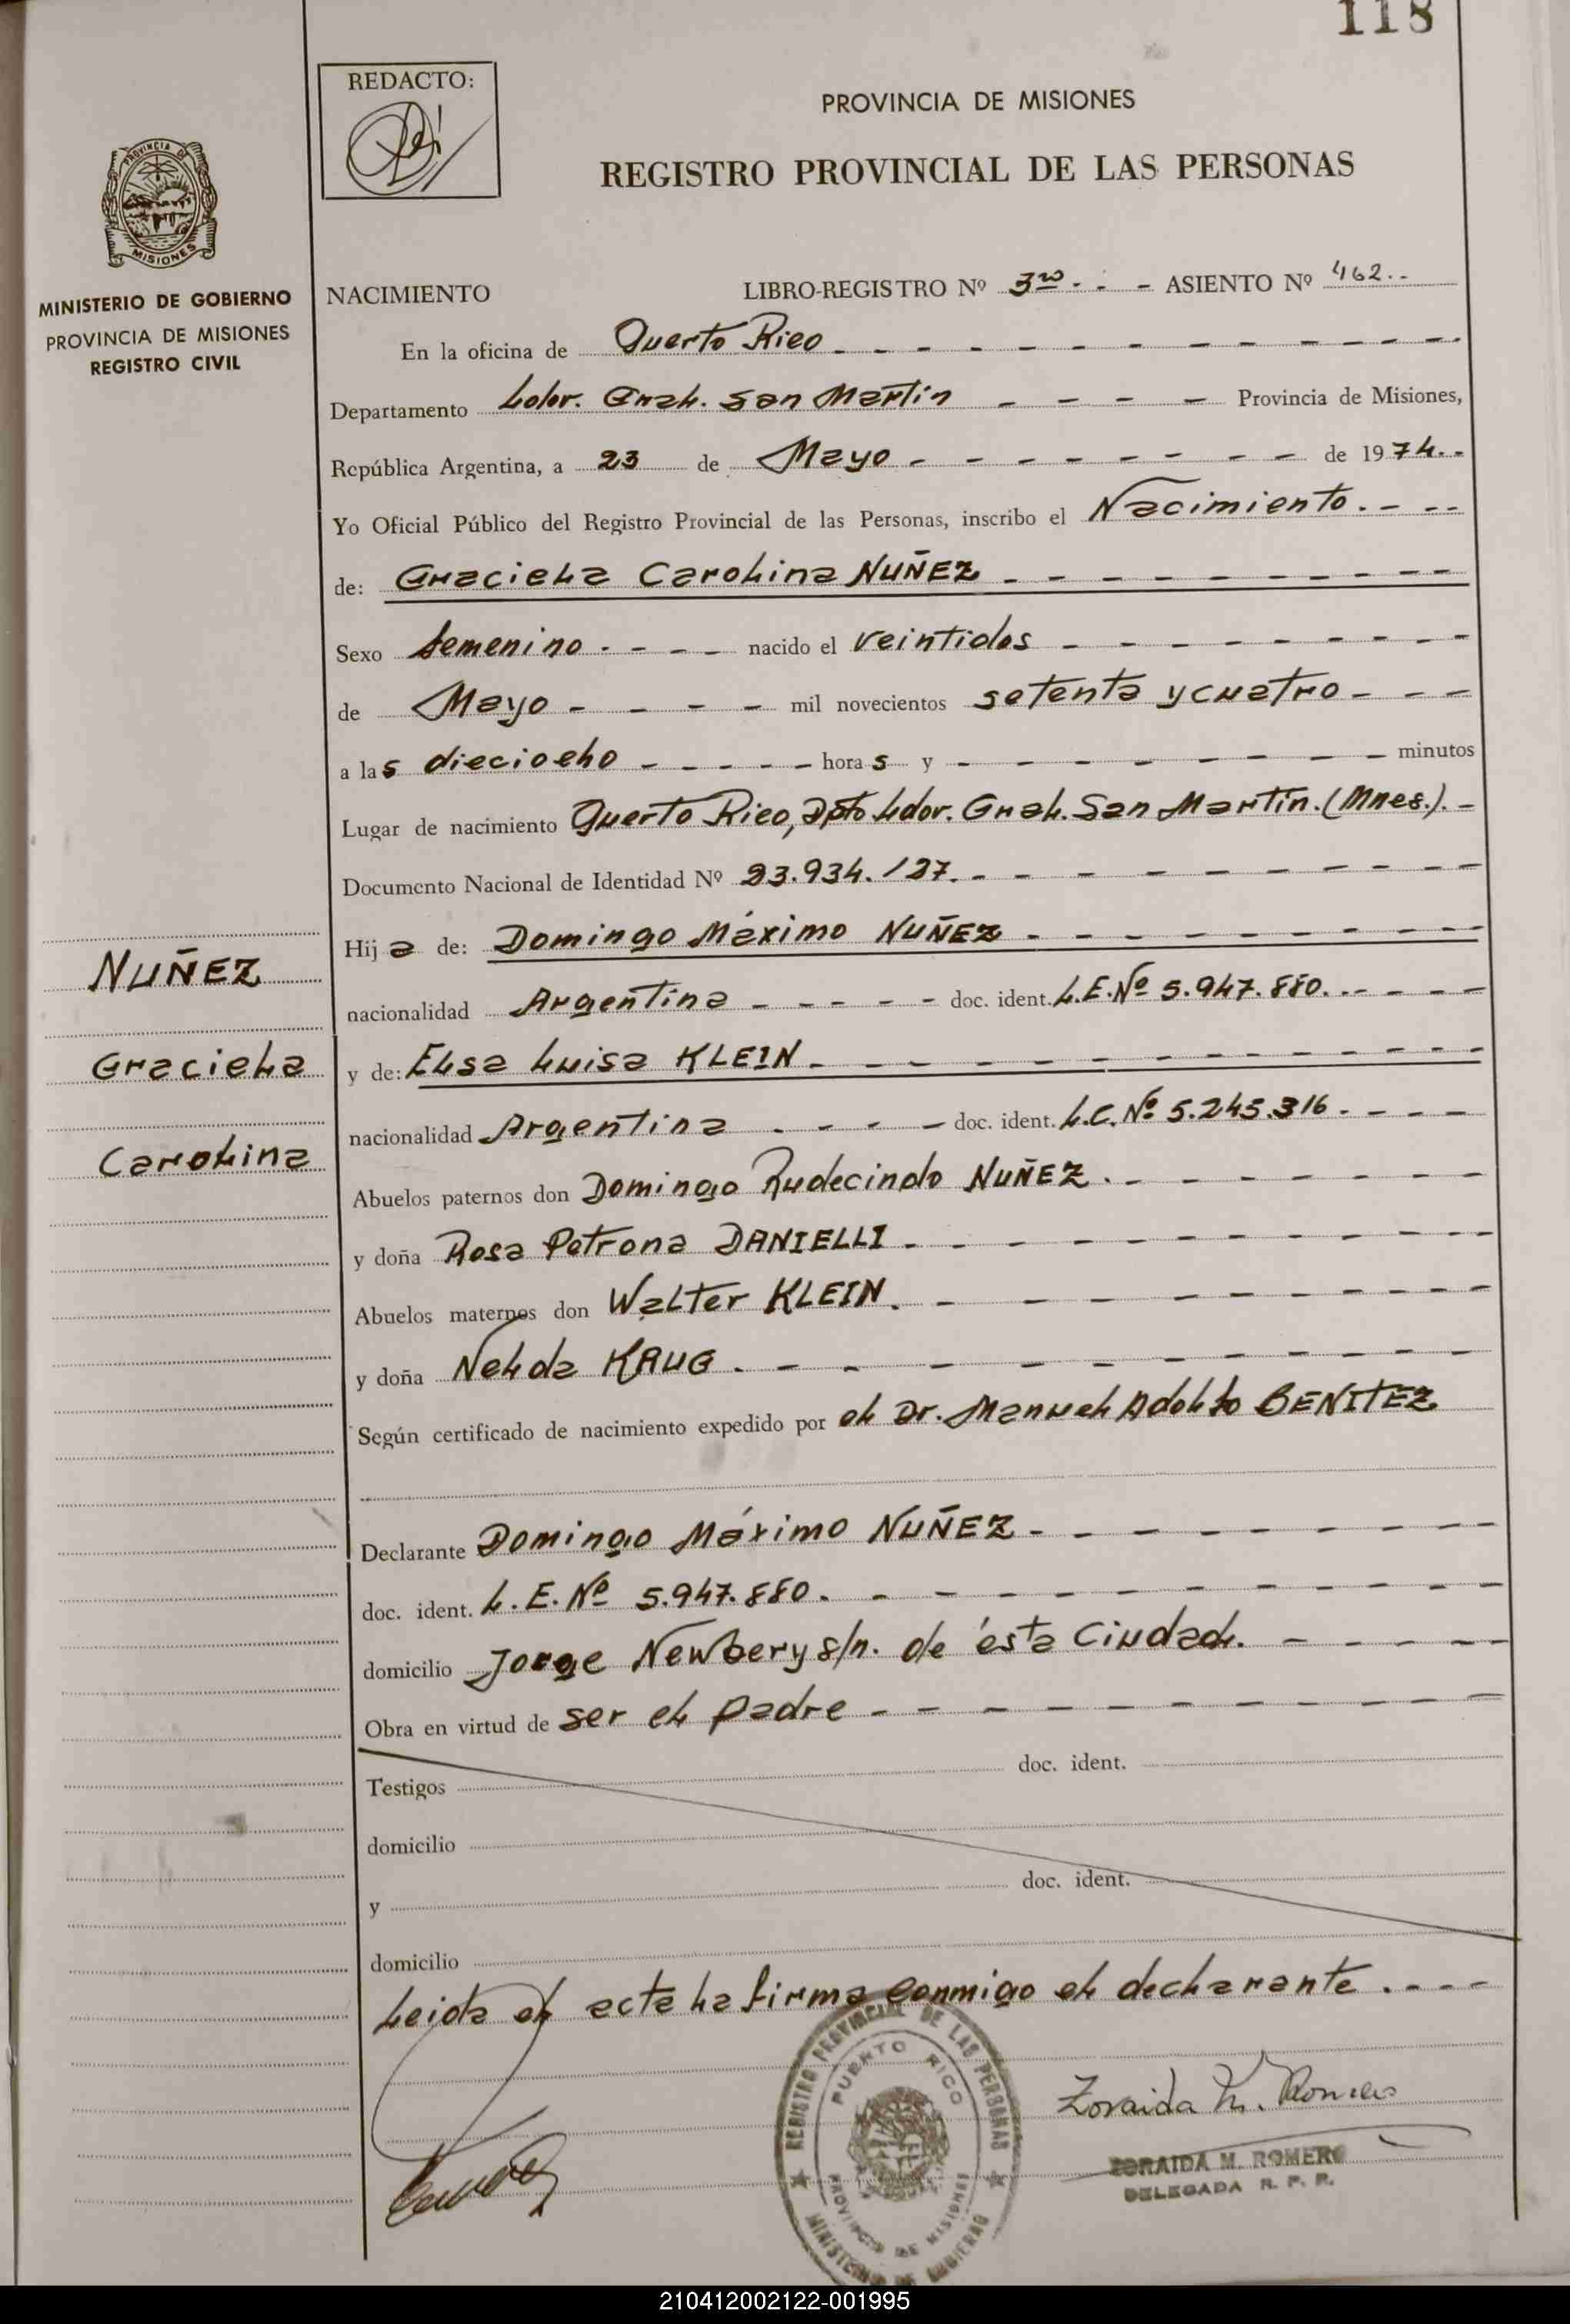 118
REDACTO:
PROVINCIA DE MISIONES
REGISTRO PROVINCIAL DE LAS PERSONAS
PROVINCIA DE
MISIONES
MINISTERIO DE GOBIERNO
PROVINCIA DE MISIONES
REGISTRO CIVIL
NACIMIENTO LIBRO-REGISTRO Nº 3ro - - - ASIENTO Nº 462..
En la oficina de Puerto Rico
Departamento Ldor. Gral. San Martín - - - - Provincia de Misiones,
República Argentina, a 23 de Mayo - - - - - - - - de 1974.-
Yo Oficial Público del Registro Provincial de las Personas, inscribo el Nacimiento. - --
de: Graciela Carolina NUÑEZ
Sexo femenino - - - - nacido el veintidos
de Mayo - - - - mil novecientos setenta y cuatro - - -
a las dieciocho - - - - - horas y - - - - - - - minutos
Lugar de nacimiento Puerto Rico, Dpto Ldor. Gral. San Martín. (Mnes.). -
Documento Nacional de Identidad Nº 23.934.127.
Hija de: Domingo Máximo NUÑEZ
nacionalidad Argentina - - - - - doc. ident. L.E. Nº 5.947.880.
y de: Elsa Luisa KLEIN.
nacionalidad Argentina - - - - doc. ident. L.C. Nº 5.245.316.
Abuelos paternos don Domingo Rudecindo NUÑEZ.
y doña Rosa Petrona DANIELLI.
Abuelos maternos don Walter KLEIN.
y doña Nelda KRUG.
Según certificado de nacimiento expedido por el Dr. Manuel Adolfo BENITEZ
Declarante Domingo Máximo NUÑEZ
doc. ident. L.E. Nº 5.947.880.
domicilio Jorge Newbery s/n. de ésta Ciudad.
Obra en virtud de ser el padre
Testigos doc. ident.
domicilio
y doc. ident.
domicilio
Leida el acta la firma conmigo el declarante.
NUÑEZ
Graciela
Carolina
REGISTRO PROVINCIAL DE LAS PERSONAS
PUERTO RICO
PROVINCIA DE MISIONES
MINISTERIO DE GOBIERNO
Zoraida M. Romero
ZORAIDA M. ROMERO
DELEGADA R. P. P.
210412002122-001995